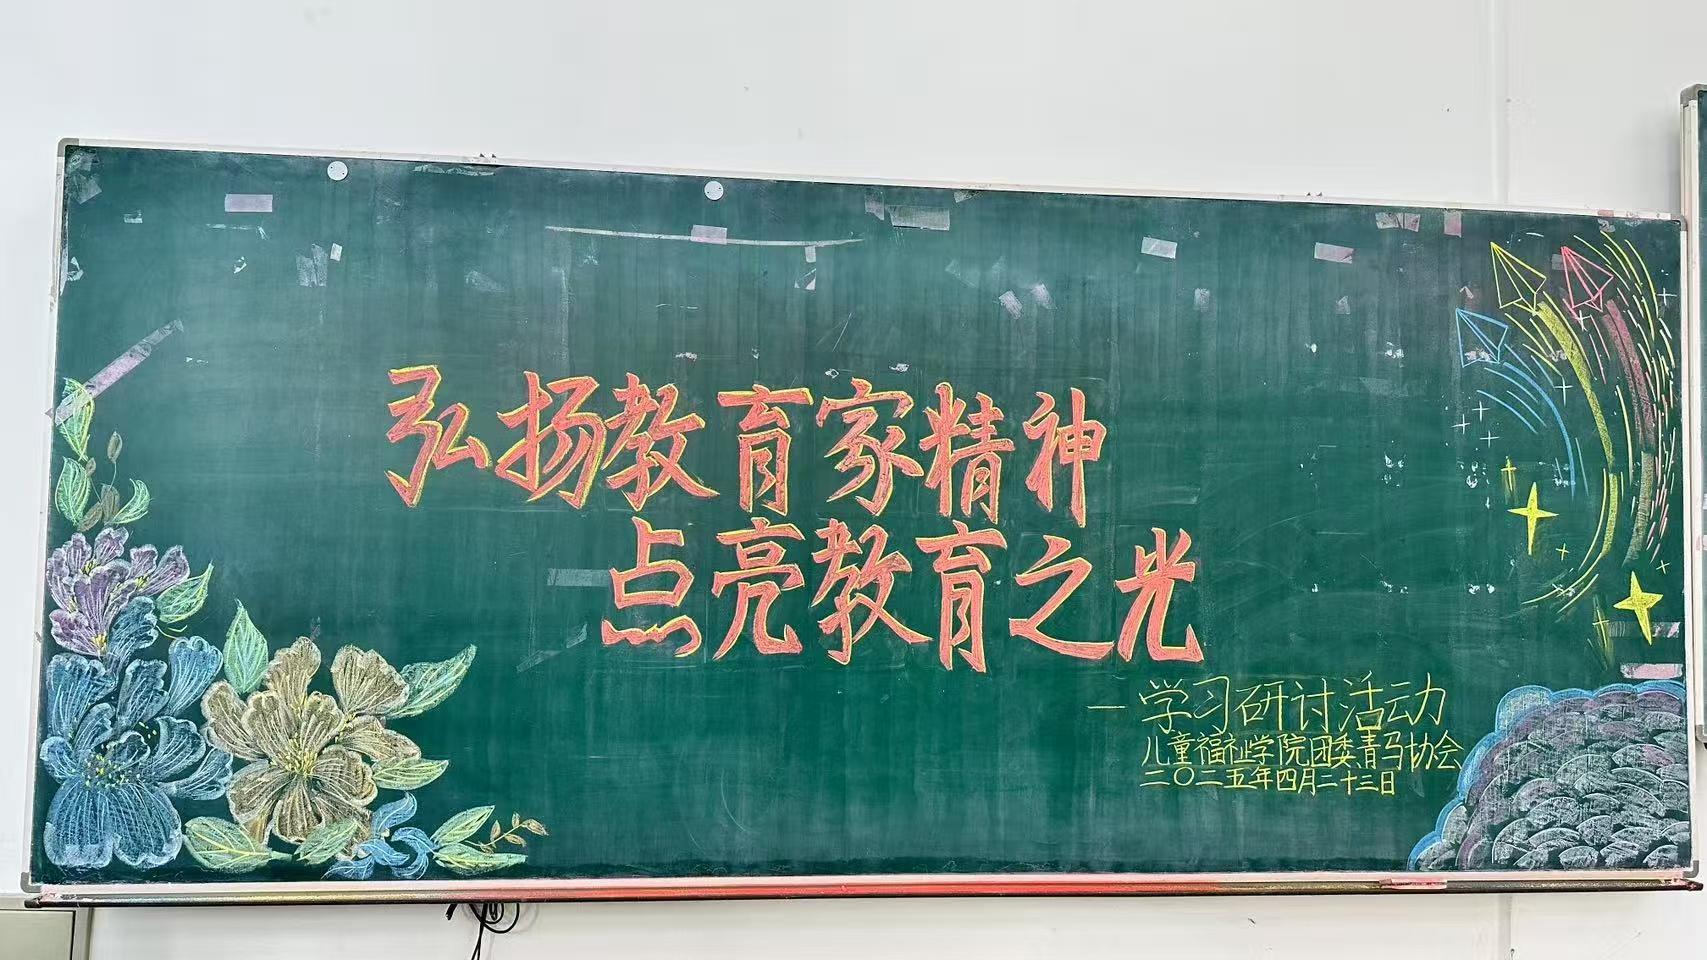 弘扬教育家精神
点亮教育之光
—学习研讨活动
儿童福祉学院团委青马协会
二〇二五年四月二十三日